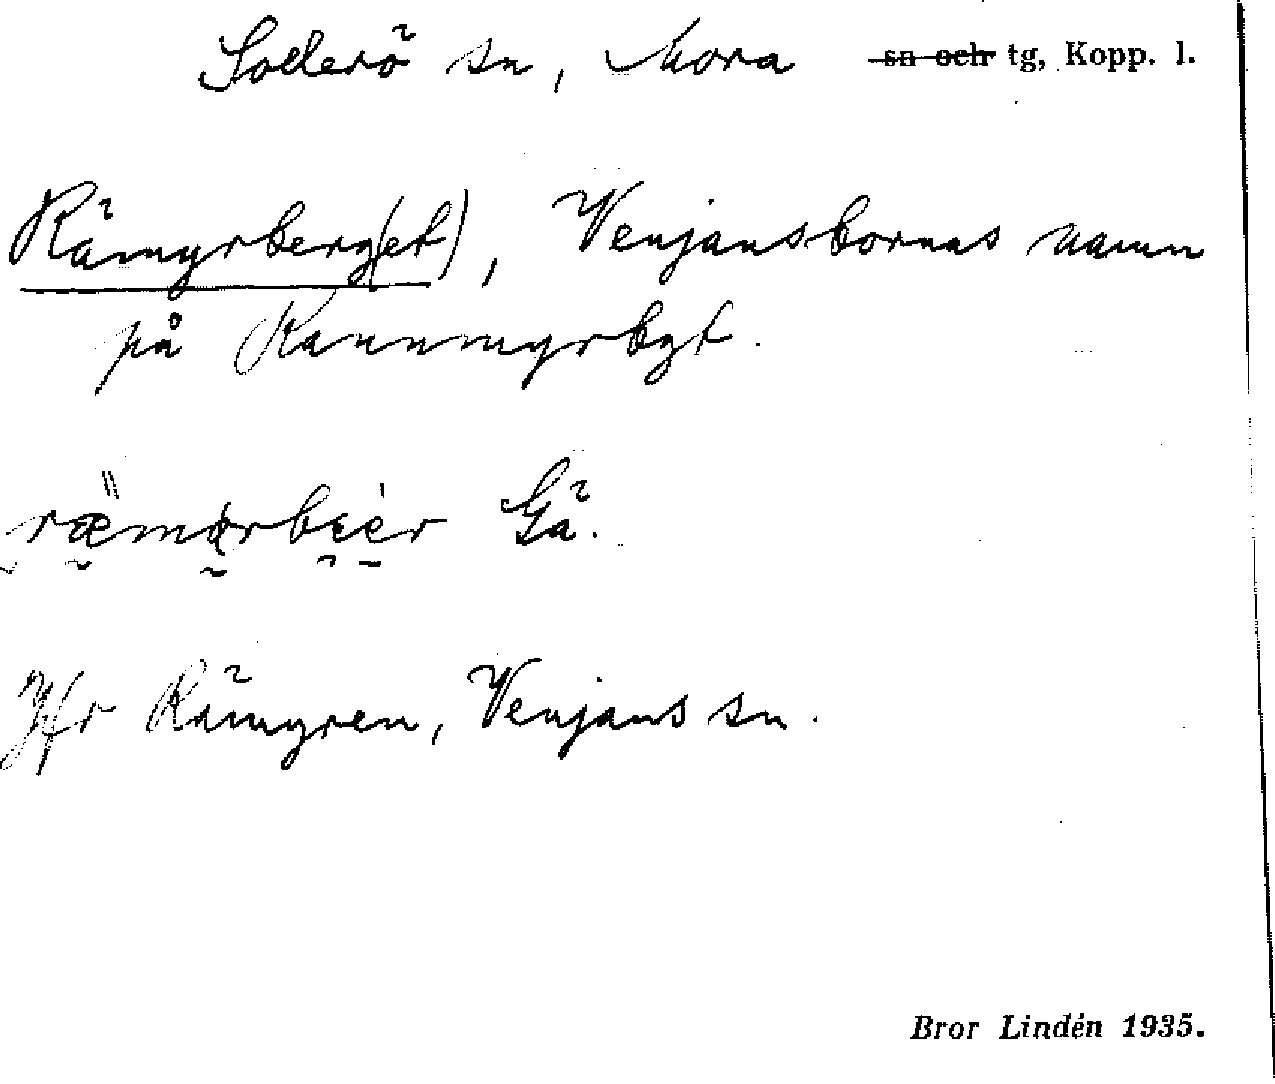 Sollerö sn, Mora sn och tg, Kopp. l.
Rämyrberg(et), Venjansbornas namn
på Rannmyrbgt.
Gä.
Jfr Rämyren, Venjans sn.
Bror Lindén 1935.